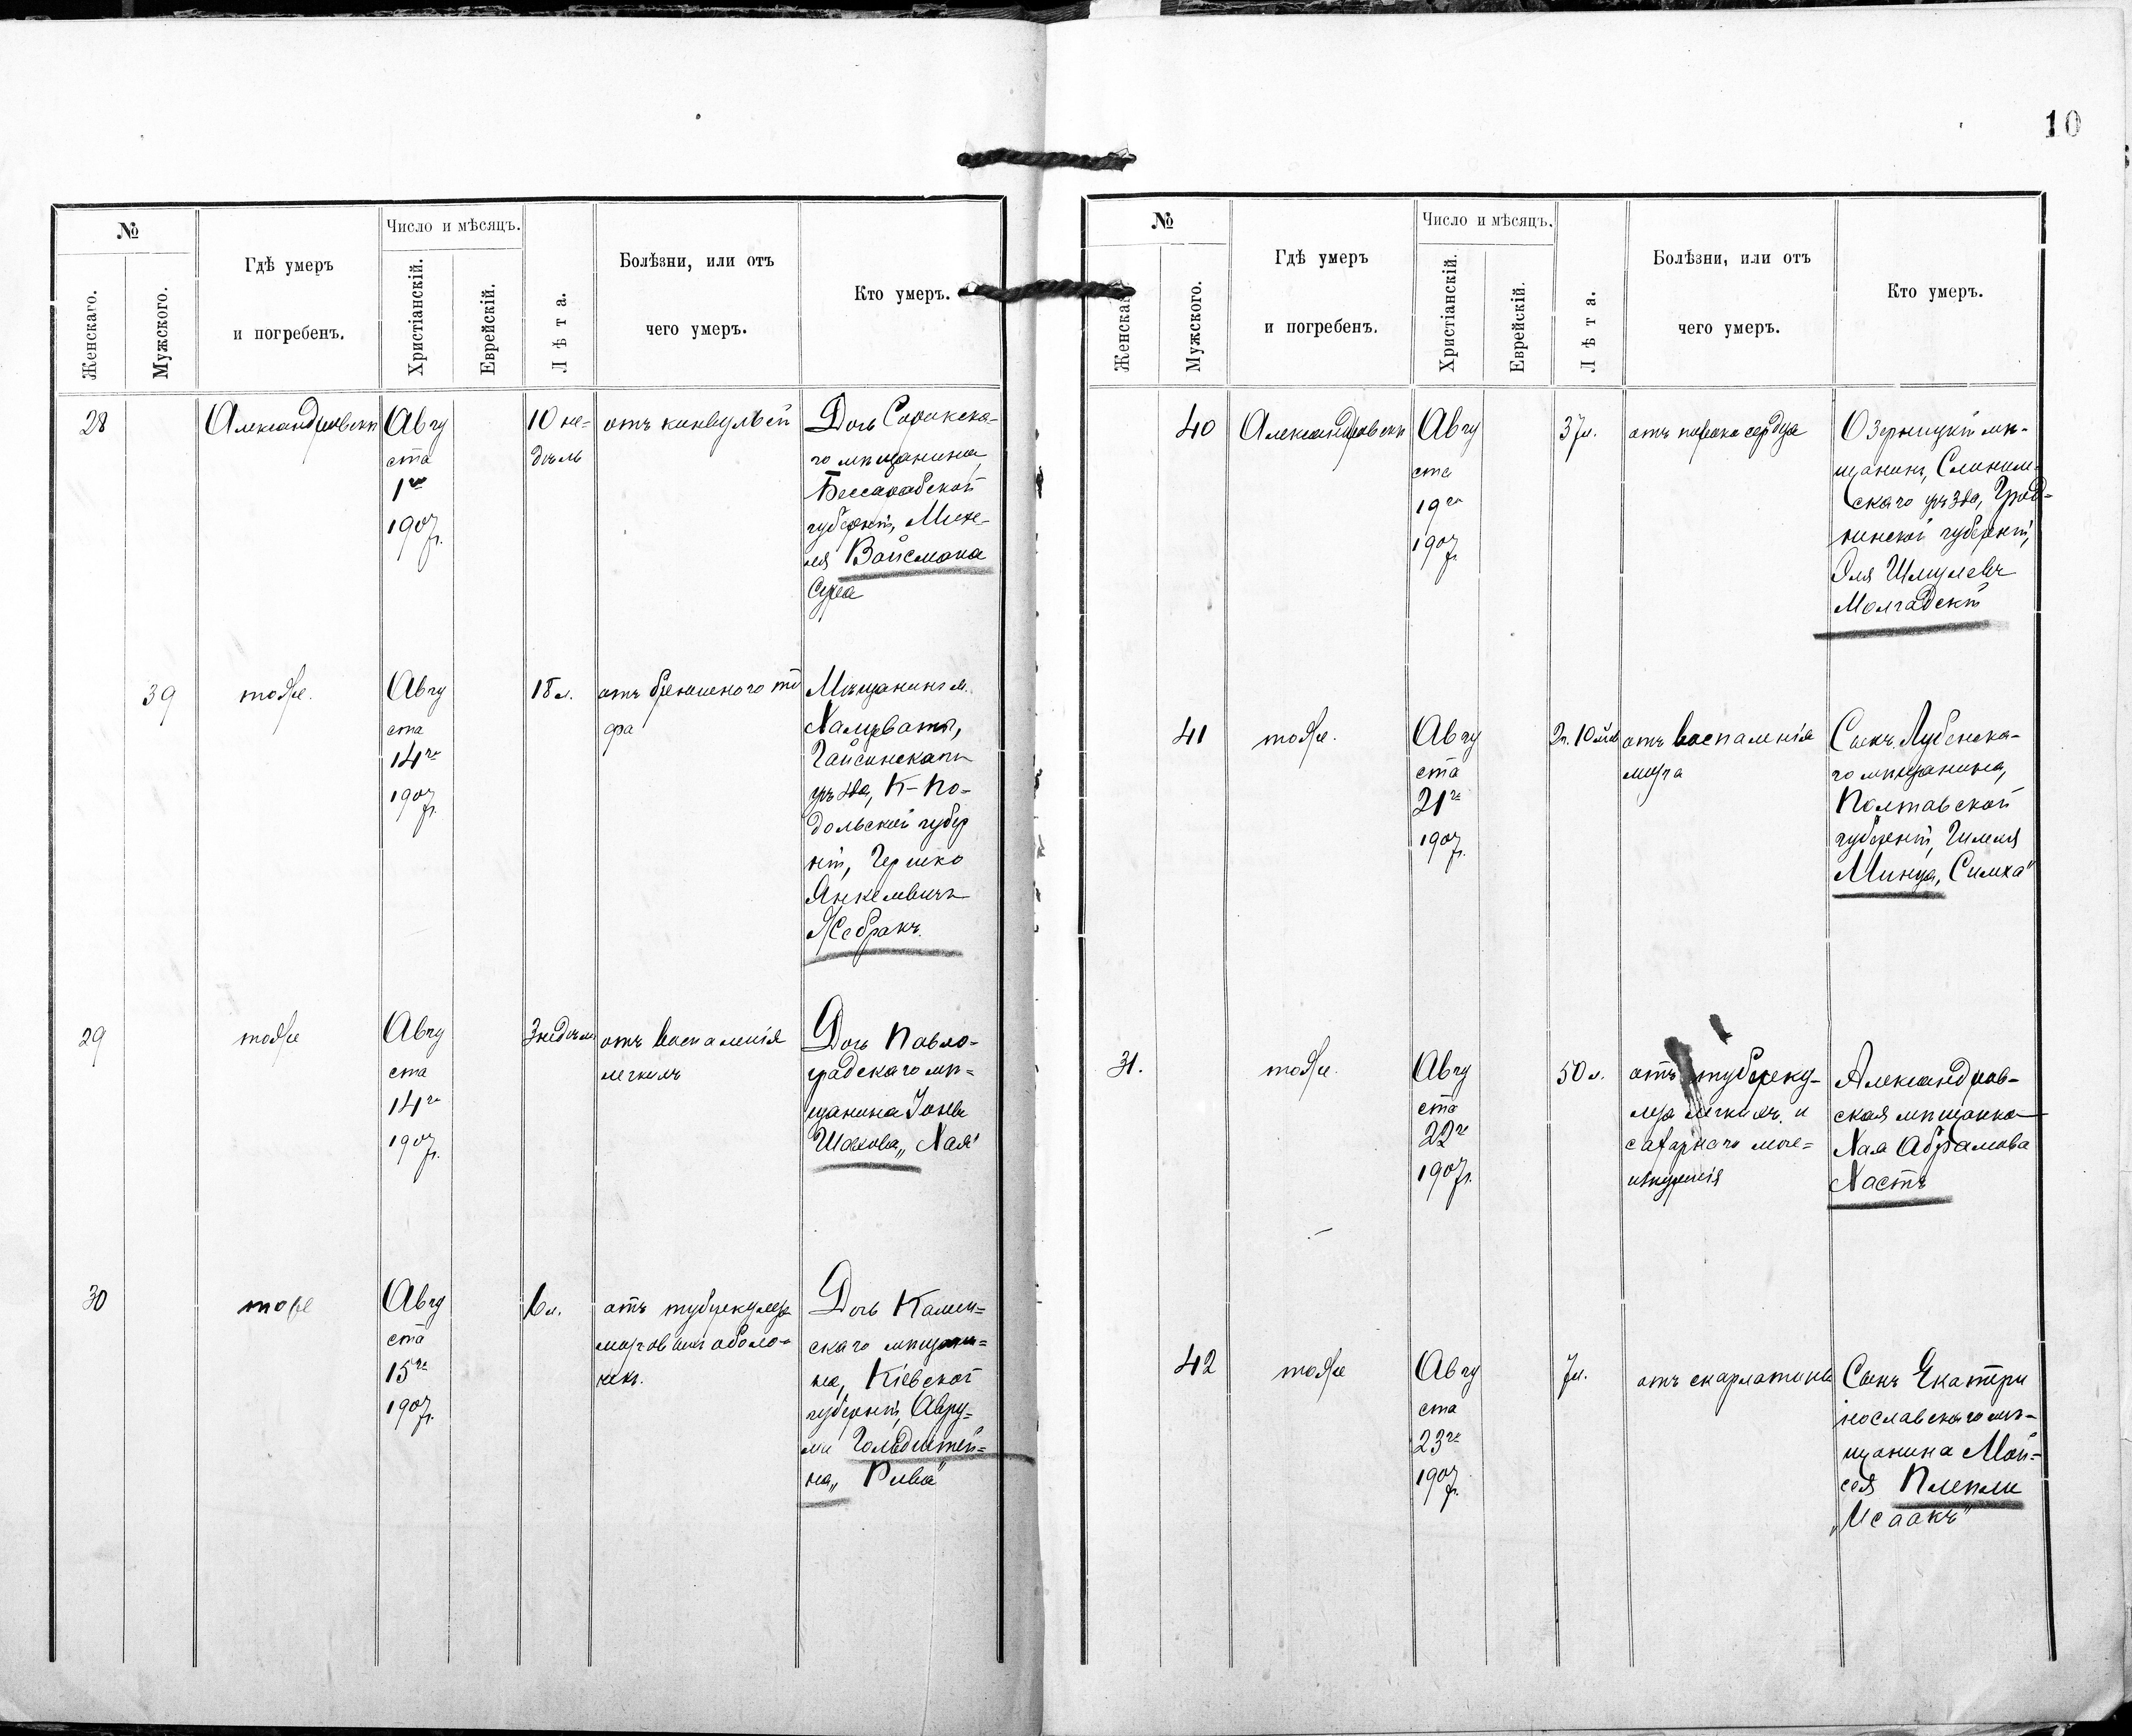 10
№
Женскаго.
Мужского.
Гдѣ умеръ
и погребенъ.
Число и мѣсяцъ.
Христіанскій.
Еврейскій.
Лѣта.
Болѣзни, или отъ
чего умеръ.
Кто умеръ.
28
Александровскъ
Авгу
ста
1го
1907 г.
10 не-
дѣль
отъ конвульсій
Дочь Сорокска-
го мѣщанина
Бессарабской
губерніи, Михе-
ля Войсмана
Сура
39
тоже.
Авгу
ста
14го
1907 г.
18 л.
отъ брюшного ти
фа
Мѣщанинъ м.
Хащевато,
Гайсинскаго
уѣзда, К-По-
дольской губер
ніи, Гершко
Янкелевичъ
Жебракъ.
29
тоже
Авгу
ста
14го
1907 г.
3 недѣли
отъ воспаленія
легкихъ
Дочь Павло-
градскаго мѣ-
щанина Іоны
Шахова „Хая"
30
тоже
Авгу
ста
15го
1907 г.
6 л.
отъ туберкулеза
мозговыхъ оболо-
чекъ.
Дочь Камен-
скаго мѣщани-
на, Кіевской
губерніи, Авру-
ми Гольдштей-
на „Рива"
№
Женска
Мужского.
Гдѣ умеръ
и погребенъ.
Число и мѣсяцъ.
Христіанскій.
Еврейскій.
Лѣта.
Болѣзни, или отъ
чего умеръ.
Кто умеръ.
40
Александровскъ
Авгу
ста
19го
1907 г.
37 л.
отъ порока сердца
Озерницкій мѣ-
щанинъ, Слоним-
скаго уѣзда, Грод-
ненской губерніи,
Эля Шмулевъ
Молчадскій
41
тоже.
Авгу
ста
21го
1907 г.
2 г. 10 мѣс
отъ воспаленія
мозга
Сынъ Лубенска-
го мѣщанина,
Полтавской
губерніи, Гилеля
Минца, „Симха"
31.
тоже.
Авгу
ста
22го
1907 г.
50 л.
отъ туберку-
леза легкихъ и
сахарнаго моче-
изнуренія
Александров-
ская мѣщанка
Хая Абрамова
Хастъ
42
тоже
Авгу
ста
23го
1907 г.
7 л.
отъ скарлатины
Сынъ Екатери
нославскаго мѣ-
щанина Мой-
сея Плепли
„Исаакъ"